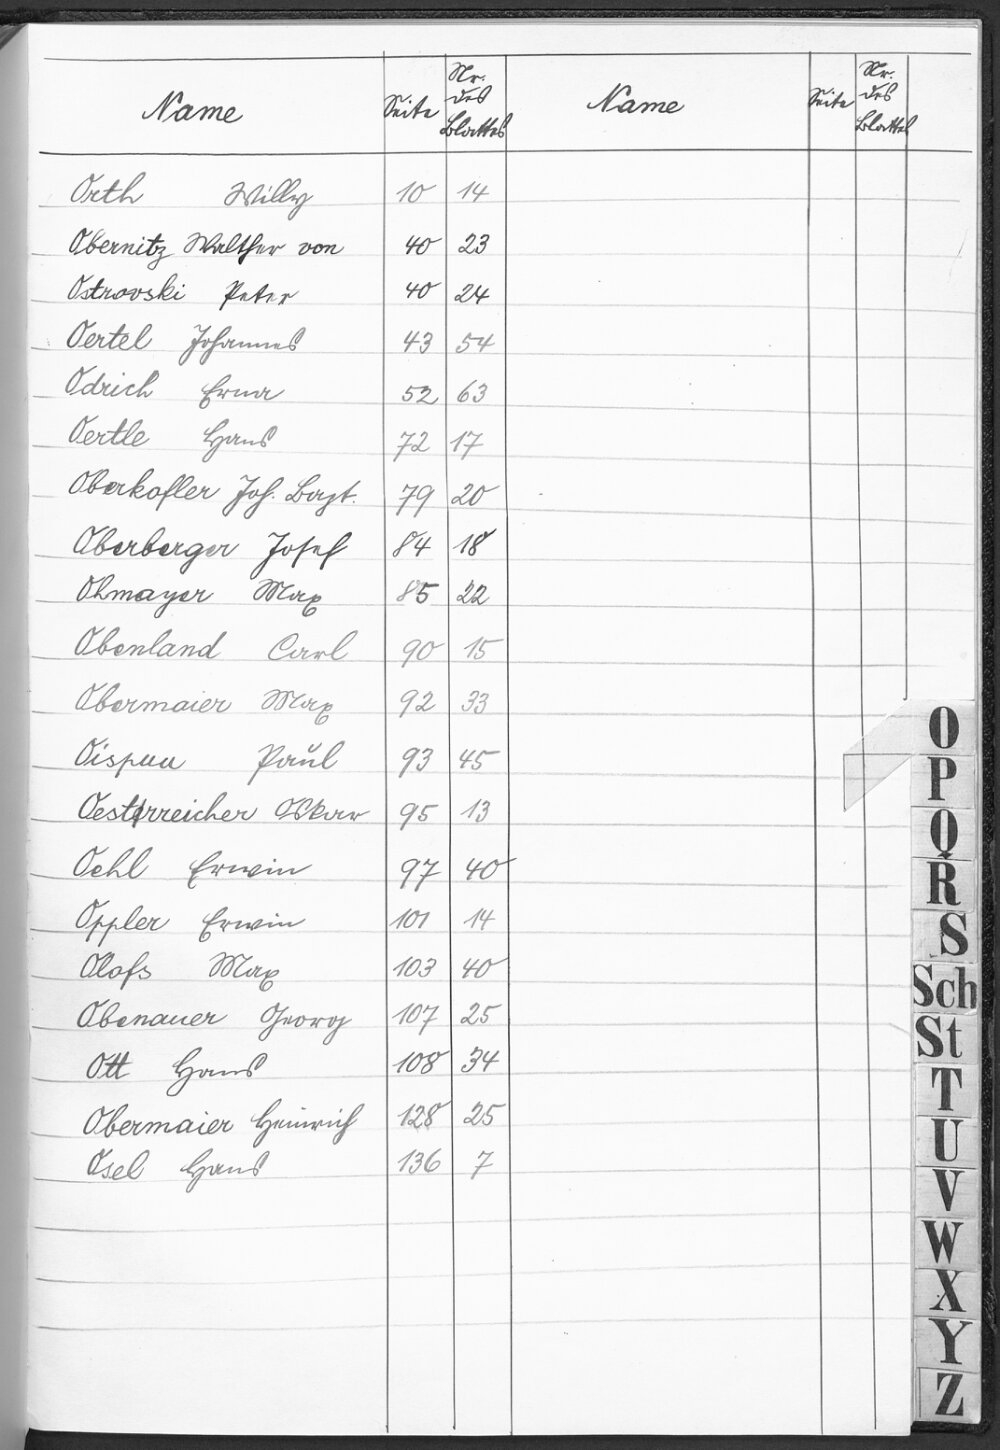 Name Seite Nr. des Blattes Name Seite Nr. des Blattes
Orth Willy 10 14
Obernitz Walther von 40 23
Ostrovski Peter 40 24
Oertel Johannes 43 54
Odrich Erna 52 63
Oertle Hans 72 17
Oberkofler Joh. Bapt. 79 20
Oberberger Josef 84 18
Ohmayer Max 85 22
Obenland Carl 90 15
Obermaier Max 92 33
Oispuu Paul 93 45
Oesterreicher Oskar 95 13
Oehl Erwin 97 40
Oppler Erwin 101 14
Olofs Max 103 40
Obenauer Georg 107 25
Ott Hans 108 34
Obermaier Heinrich 128 25
Osel Hans 136 7
O
P
Q
R
S
Sch
St
T
U
V
W
X
Y
Z